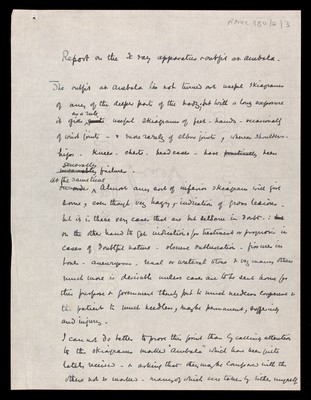 Report on the X ray apparatus outfit in Ambala.
The outfit in Ambala has not turned out useful skiagrams
of any of the deeper parts of the body, but with a long exposure
it as a rule gives useful skiagrams of feet - hands - occasionally
of wrist joints - & more rarely of elbow joints, whereas shoulders -
hips - knees - chests - head cases - have been
generally failures.
At the same time Almost any sort of inferior skiagram will give
some, even though very hazy, indication of gross lesions.
but it is in these very cases that we are seldom in doubt:
on the other hand to get indications for treatment or prognosis in
cases of doubtful nature - obscure - fissures in
bone - aneurysms - renal or ureteral stone & very many others
much more is desirable unless cases are to be sent home for
this purpose & government thereby put to much needless expense &
the patient to much needless, maybe permanent, suffering
and injury.
I can not do better to prove this point than by calling attention
to the skiagrams marked "Ambala" which have been quite
lately received - & asking that they may be compared with the
others not so marked - many of which were taken by myself